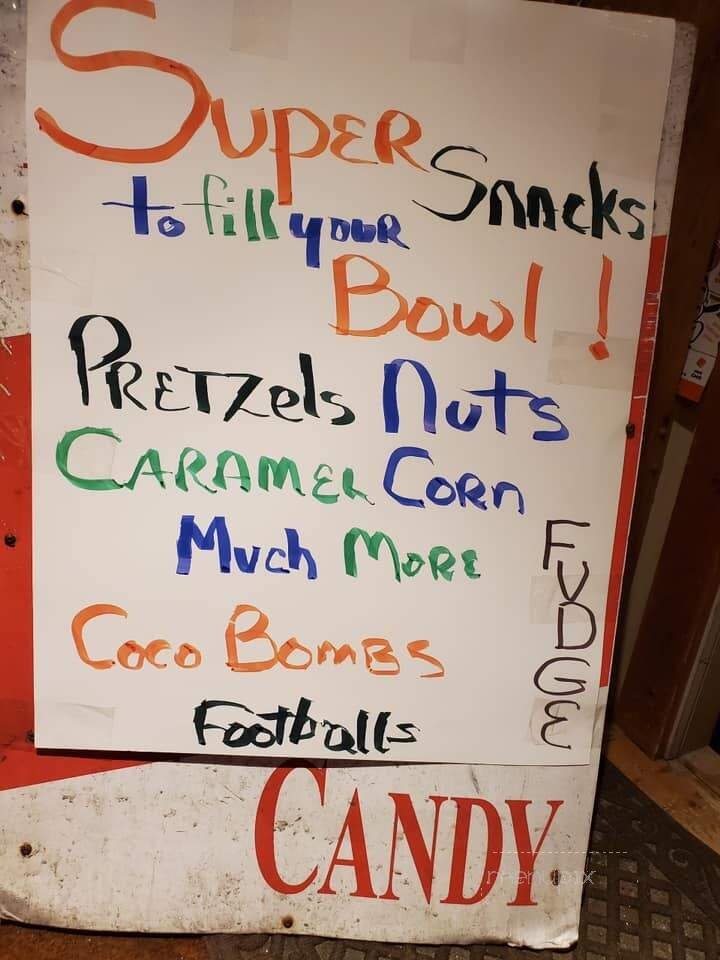 SUPER
Snacks
to fill your
Bowl!
PRETZels Nuts
CARAMEL CORn
Much MORE
FUDGE
Coco BOMBS
Footballs
CANDY
menupix